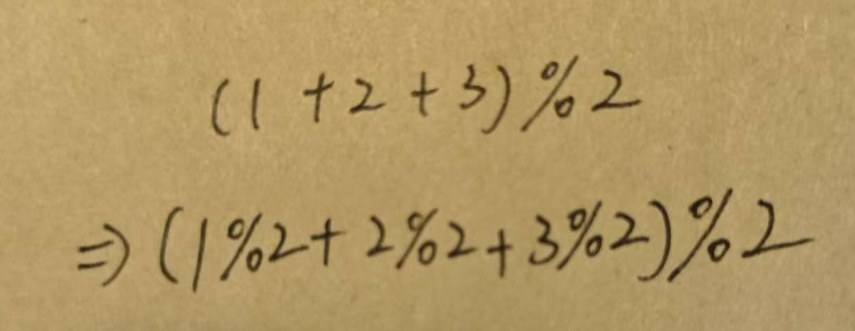 (1 + 2 + 3) % 2
⇒ (1%2 + 2%2 + 3%2) % 2